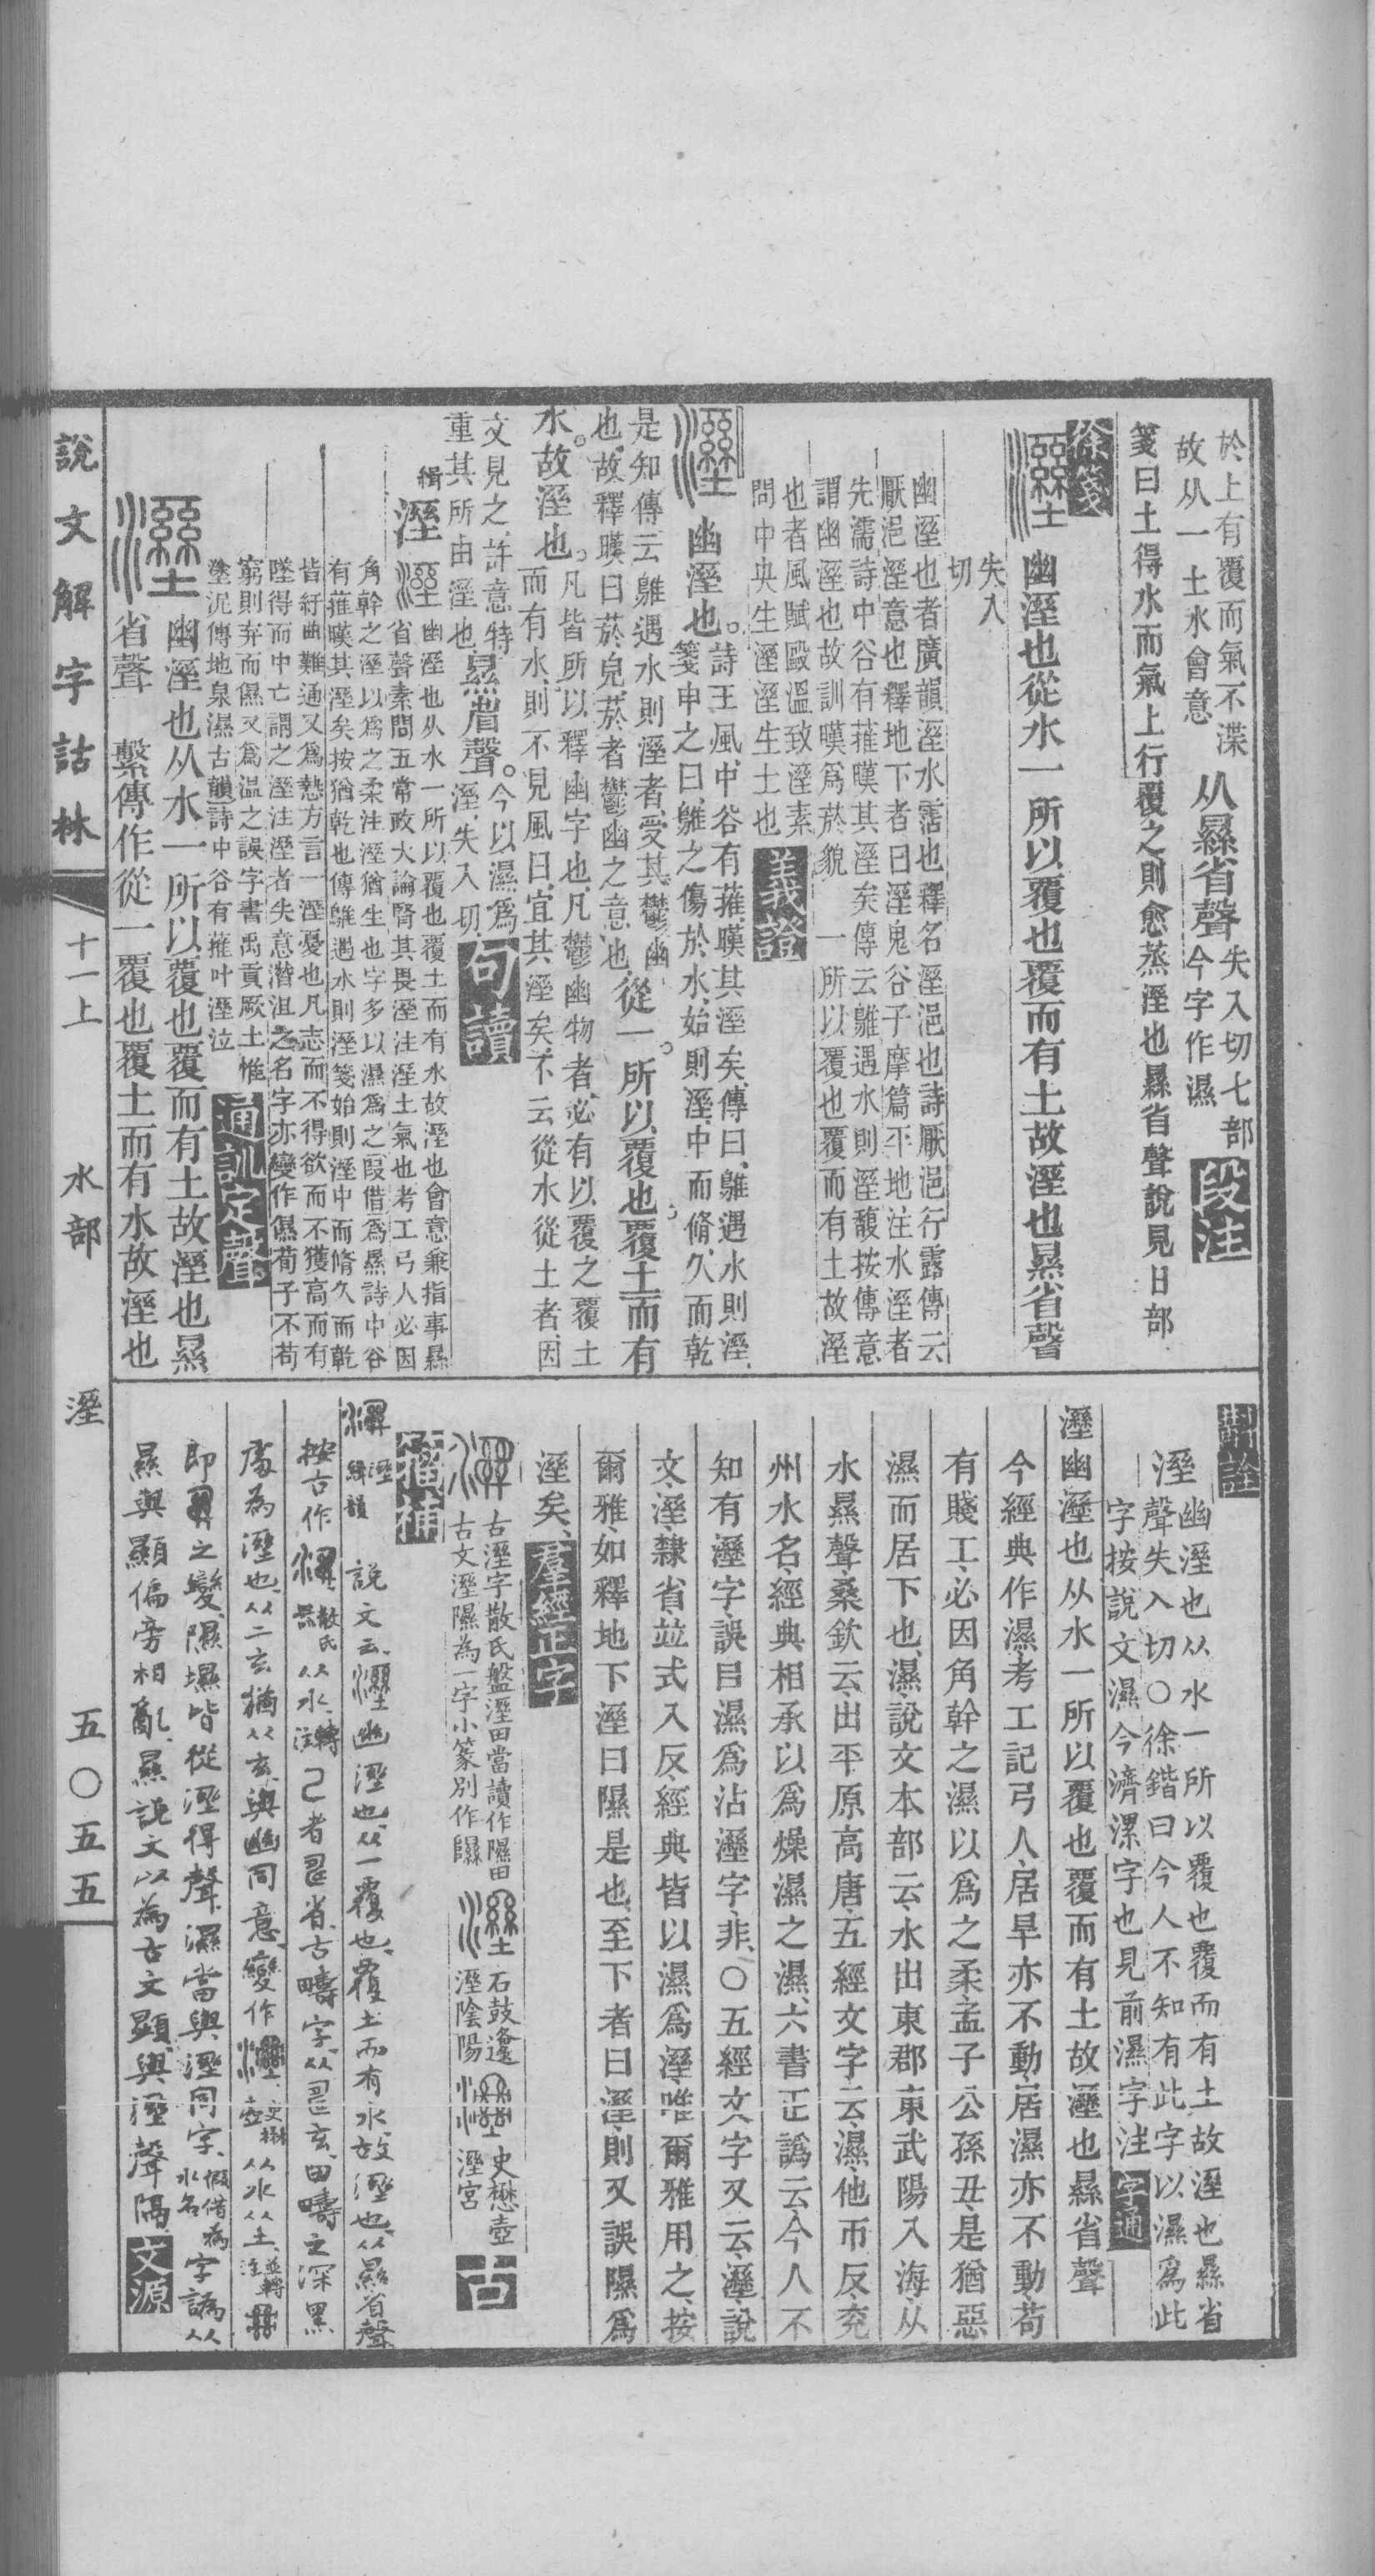 於上有覆而氣不渫
故从一土水會意
从㬎省聲
失入切七部
今字作濕
段注
箋曰土得水而氣上行覆之則愈蒸溼也㬎省聲說見日部
徐箋
幽溼也從水一所以覆也覆而有土故溼也㬎省聲
失入
切
幽溼也者廣韻溼水霑也釋名溼浥也詩厭浥行露傳云
厭浥溼意也釋地下者曰溼鬼谷子摩篇平地注水溼者
先濡詩中谷有蓷暵其溼矣傳云鵻遇水則溼馥按傳意
謂幽溼也故訓暵爲菸貌 一所以覆也覆而有土故溼
也者風賦毆溫致溼素
問中央生溼溼生土也
義證
幽溼也。
詩王風、中谷有蓷、暵其溼矣、傳曰、鵻遇水則溼、
箋申之曰、鵻之傷於水、始則溼、中而脩、久而乾
是知傳云鵻遇水則溼者、受其鬱幽
也、故釋暵曰菸皃、菸者鬱幽之意也
從一。所以覆也。覆土而有
水。故溼也。
凡皆所以釋幽字也、凡鬱幽物者、必有以覆之、覆土
而有水、則不見風日、宜其溼矣、不云從水從土者、因
文見之、許意特
重其所由溼也
㬎省聲。
今以濕爲
溼、失入切
句讀
緝
溼
幽溼也从水一所以覆也覆土而有水故溼也會意兼指事㬎
省聲素問五常政大論腎其畏溼注溼土氣也考工弓人必因
角幹之溼以爲之柔注溼猶生也字多以濕爲之叚借爲㬎詩中谷
有蓷暵其溼矣按猶乾也傳鵻遇水則溼箋始則溼中而脩久而乾
皆紆曲難通又爲慹方言一溼憂也凡志而不得欲而不獲高而有
墜得而中亡謂之溼注溼者失意潛沮之名字亦變作僫荀子不苟
窮則弃而儑又爲溫之誤字書禹貢厥土惟
塗泥傳地泉濕古韻詩中谷有蓷叶溼泣
通訓定聲
幽溼也从水一所以覆也覆而有土故溼也㬎
省聲 繫傳作從一覆也覆土而有水故溼也
說文解字詁林
十一上 水部 溼 五〇五五
斠詮
溼
幽溼也从水一所以覆也覆而有土故溼也㬎省
聲失入切〇徐鍇曰今人不知有此字以濕爲此
字按說文濕今濟漯字也見前濕字注
字通
溼幽溼也从水一所以覆也覆而有土故溼也㬎省聲
今經典作濕、考工記弓人、居旱亦不動、居濕亦不動、苟
有賤工、必因角幹之濕以爲之柔、孟子公孫丑、是猶惡
濕而居下也、濕、說文本部云、水出東郡東武陽入海、从
水㬎聲、桑欽云、出平原高唐、五經文字云、濕、他帀反、兖
州水名、經典相承以爲燥濕之濕、六書正譌云、今人不
知有溼字、誤㠯濕爲沾溼字、非、〇五經文字又云、溼、說
文、溼、隸省、竝式入反、經典皆以濕爲溼、唯爾雅用之、按
爾雅、如釋地下溼曰隰是也、至下者曰溼、則又誤隰爲
溼矣、
羣經正字
古溼字散氏盤溼田當讀作隰田
古文溼隰為一字小篆別作隰
石鼓邍
溼陰陽
史懋壺
溼宮
古籀補
溼
緝韻
說文云、溼、幽溼也、从一、覆也、覆土而有水、故溼也、从㬎省聲
按古作
散氏
器
从水、
轉
注
从
即 之變、隰㙷皆從溼得聲、濕當與溼同字、
假借為
水名
字譌从
㬎與顯偏旁相亂、㬎說文以為古文顯、與溼聲隔
文源